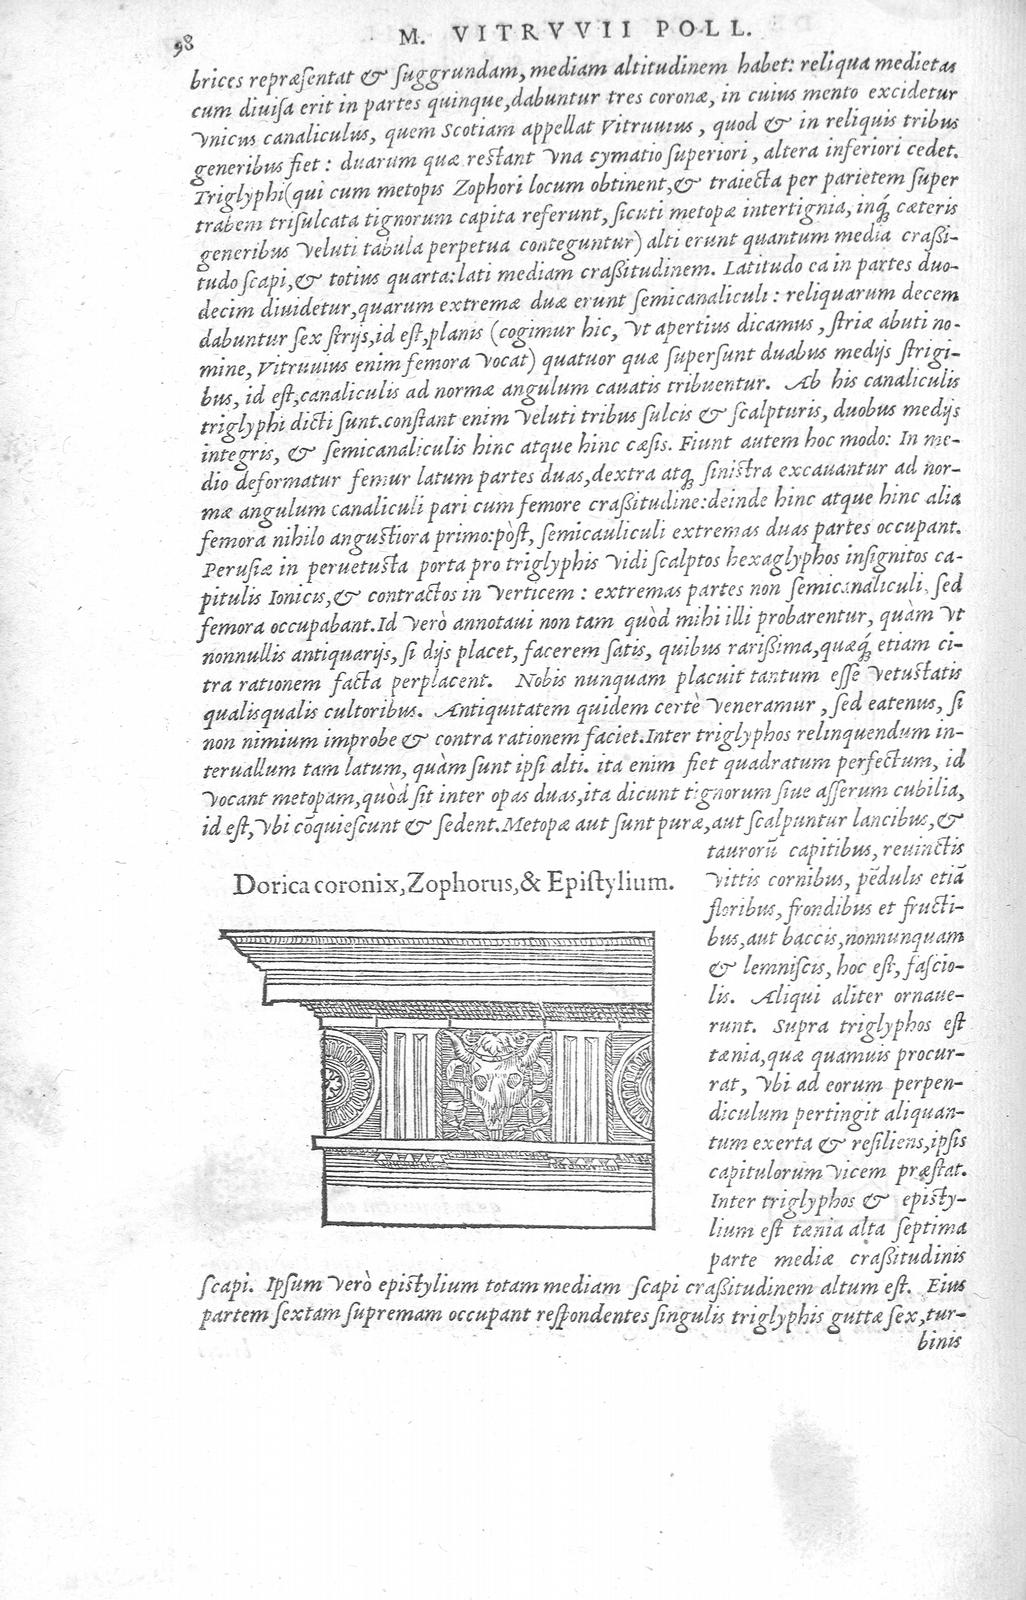 98
M. VITRVVII POLL.
brices repræsentat & suggrundam, mediam altitudinem habet: reliqua medietas
cum diuisa erit in partes quinque, dabuntur tres coronæ, in cuius mento excidetur
vnicus canaliculus, quem Scotiam appellat Vitruuius, quod & in reliquis tribus
generibus fiet: duarum quæ restant vna cymatio superiori, altera inferiori cedet.
Triglyphi (qui cum metopis Zophori locum obtinent, & traiecta per parietem super
trabem trisulcata tignorum capita referunt, sicuti metopæ intertignia, inq́; cæteris
generibus veluti tabula perpetua conteguntur) alti erunt quantum media craßi-
tudo scapi, & totius quarta: lati mediam craßitudinem. Latitudo ea in partes duo-
decim diuidetur, quarum extremæ duæ erunt semicanaliculi: reliquarum decem
dabuntur sex strijs, id est, planis (cogimur hic, vt apertius dicamus, striæ abuti no-
mine, Vitruuius enim femora vocat) quatuor quæ supersunt duabus medijs strigi-
bus, id est, canaliculis ad normæ angulum cauatis tribuentur. Ab his canaliculis
triglyphi dicti sunt. constant enim veluti tribus sulcis & scalpturis, duobus medijs
integris, & semicanaliculis hinc atque hinc cæsis. Fiunt autem hoc modo: In me-
dio deformatur femur latum partes duas, dextra atq; sinistra excauantur ad nor-
mæ angulum canaliculi pari cum femore craßitudine: deinde hinc atque hinc alia
femora nihilo angustiora primo: pòst, semicauliculi extremas duas partes occupant.
Perusiæ in peruetusta porta pro triglyphis vidi scalptos hexaglyphos insignitos ca-
pitulis Ionicis, & contractos in verticem: extremas partes non semicanaliculi, sed
femora occupabant. Id verò annotaui non tam quòd mihi illi probarentur, quàm vt
nonnullis antiquarijs, si dijs placet, facerem satis, quibus rarißima, quæq́; etiam ci-
tra rationem facta perplacent. Nobis nunquam placuit tantum esse vetustatis
qualisqualis cultoribus. Antiquitatem quidem certè veneramur, sed eatenus, si
non nimium improbe & contra rationem faciet. Inter triglyphos relinquendum in-
teruallum tam latum, quàm sunt ipsi alti. ita enim fiet quadratum perfectum, id
vocant metopam, quòd sit inter opas duas, ita dicunt tignorum siue asserum cubilia,
id est, vbi cõquiescunt & sedent. Metopæ aut sunt puræ, aut scalpuntur lancibus, &
taurorũ capitibus, reuinctis
vittis cornibus, pẽdulis etiã
floribus, frondibus et fructi-
bus, aut baccis, nonnunquam
& lemniscis, hoc est, fascio-
lis. Aliqui aliter ornaue-
runt. Supra triglyphos est
tænia, quæ quamuis procur-
rat, vbi ad eorum perpen-
diculum pertingit aliquan-
tum exerta & resiliens, ipsis
capitulorum vicem præstat.
Inter triglyphos & episty-
lium est tænia alta septima
parte mediæ craßitudinis
Dorica coronix, Zophorus, & Epistylium.
scapi. Ipsum verò epistylium totam mediam scapi craßitudinem altum est. Eius
partem sextam supremam occupant respondentes singulis triglyphis guttæ sex, tur-
binis